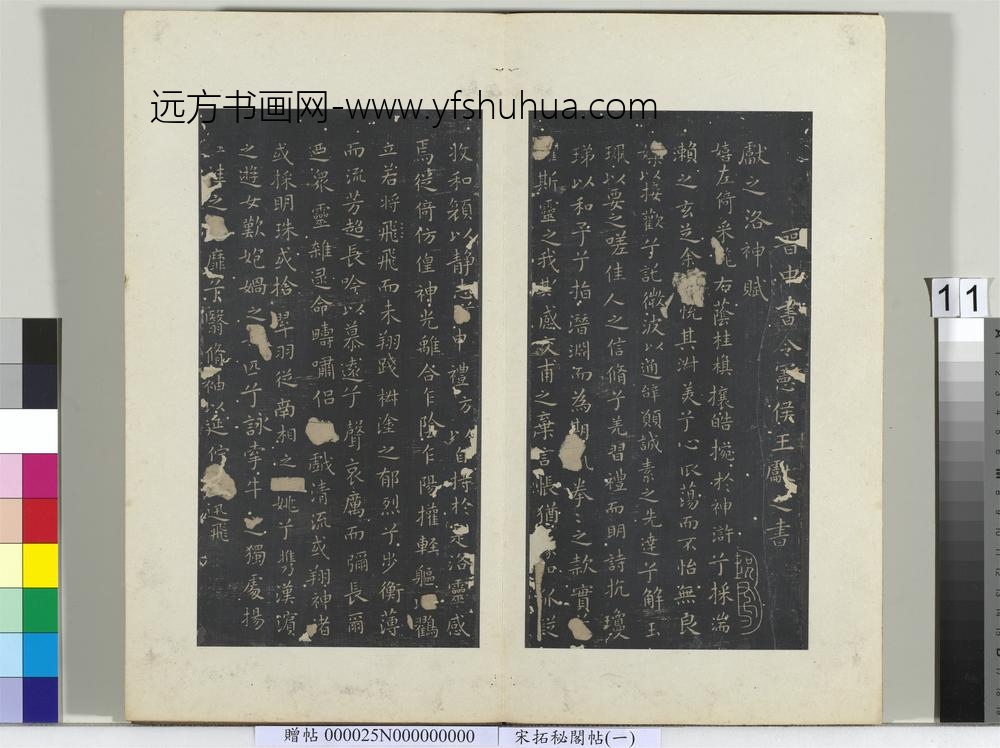 远方书画网-www.yfshuhua.com
晉中書令憲侯王獻之書
獻之洛神賦
嬉左倚采旄右蔭桂旗攘皓捥於神滸兮採湍
瀨之玄芝余悅其淑美兮心振蕩而不怡無良
以接歡兮託微波以通辭願誠素之先達兮解玉
珮以要之嗟佳人之信脩兮羌習禮而明詩抗瓊
珶以和予兮指潛淵而為期執拳〻之款實
斯靈之我欺感交甫之棄言悵猶狐疑
收和顏以靜志申禮防以自持於是洛靈感
焉徙倚仿偟神光離合乍陰乍陽擢軽軀鸛
立若將飛飛而未翔踐椒塗之郁烈兮步衡薄
而流芳超長吟以慕遠兮聲哀厲而彌長爾
迺衆靈雜遝命疇嘯侶戲清流或翔神渚
或採明珠或拾翠羽從南相之姚兮攜漢濱
之遊女歎匏媧之匹兮詠牽牛之獨處揚
袿之靡兮翳脩袖延佇迅飛
11
贈帖 000025N000000000
宋拓秘閣帖(一)